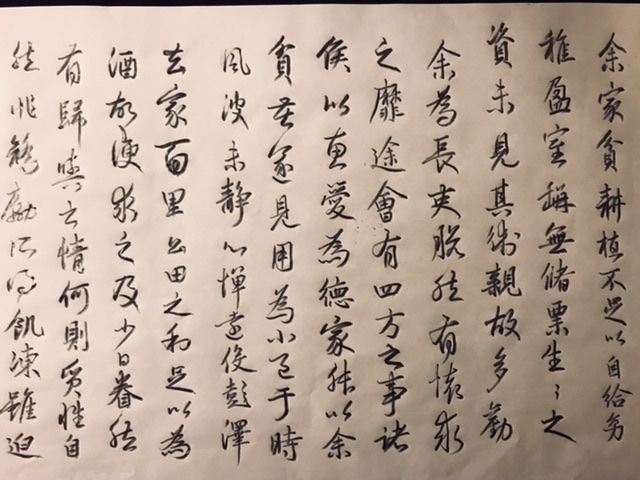 余家貧耕植不足以自給幼
稚盈室缾無儲粟生〻之
資未見其術親故多勸
余為長吏脫然有懷求
之靡途會有四方之事諸
侯以惠愛為德家叔以余
貧苦遂見用為小邑于時
風波未靜心憚遠役彭澤
去家百里公田之利足以為
酒故便求之及少日眷然
有歸與之情何則質性自
然非矯勵所得飢凍雖迫